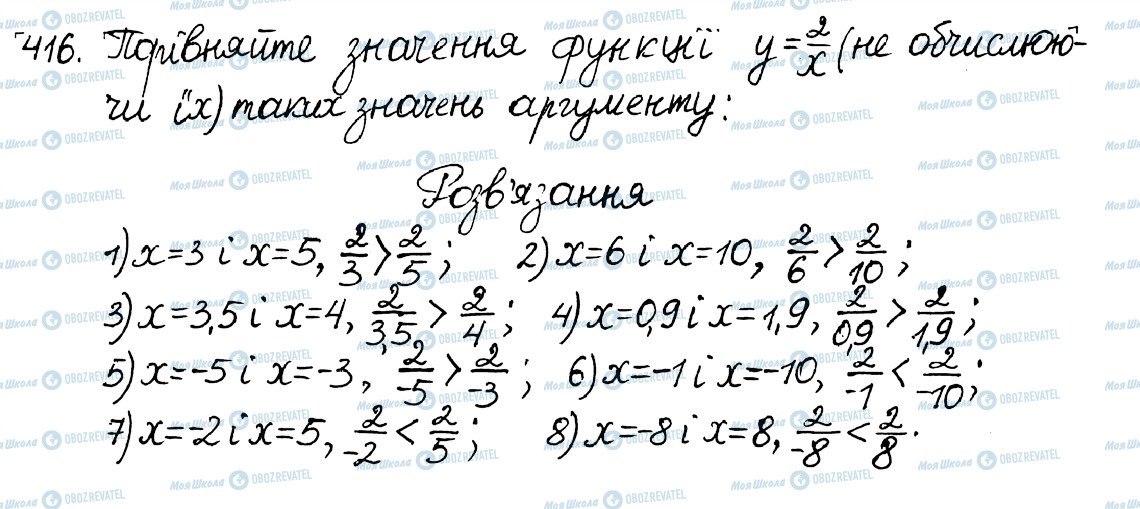 416. Порівняйте значення функції y = 2/x (не обчислюю-
чи їх) таких значень аргументу:
Розв'язання
1) x=3 і x=5, 2/3 > 2/5; 2) x=6 і x=10, 2/6 > 2/10;
3) x=3,5 і x=4, 2/3,5 > 2/4; 4) x=0,9 і x=1,9, 2/0,9 > 2/1,9;
5) x=-5 і x=-3, 2/-5 > 2/-3; 6) x=-1 і x=-10, 2/-1 < 2/-10;
7) x=-2 і x=5, 2/-2 < 2/5; 8) x=-8 і x=8, 2/-8 < 2/8.